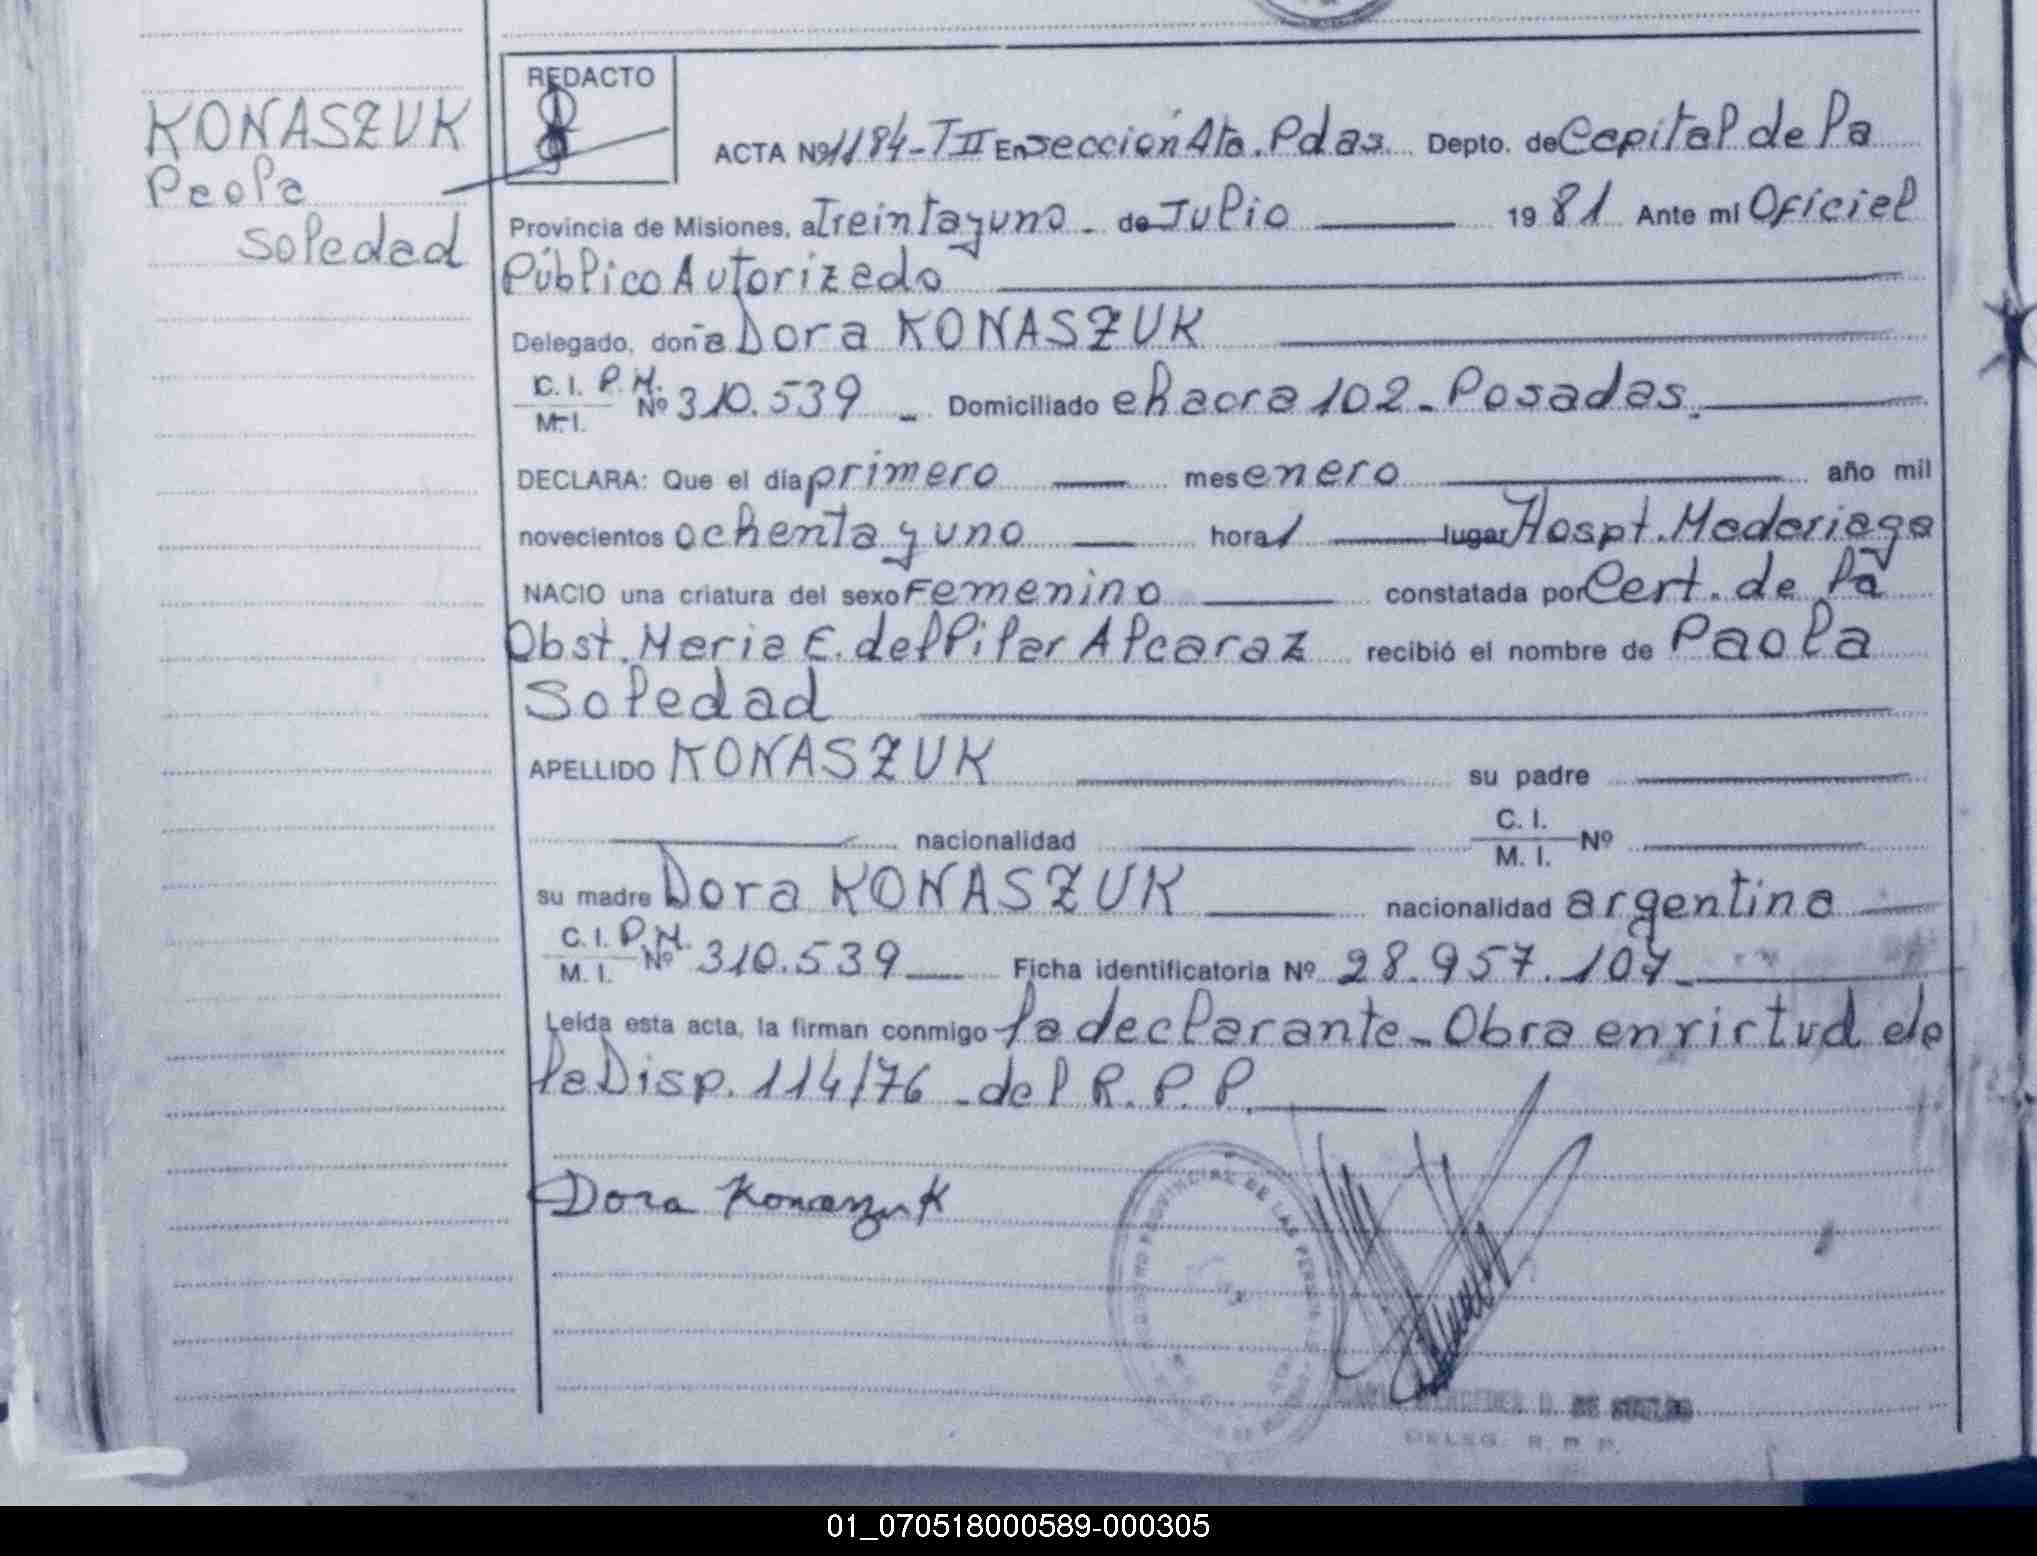 KONASZUK
Paola
Soledad
REDACTO
ACTA Nº 1184-T II En sección 4ta. Pdas. Depto. de Capital de la
Provincia de Misiones, a Treinta y uno - de Julio 1981 Ante mí Oficial
Público Autorizado
Delegado, doña Dora KONASZUK
C. I. P. M. Nº 310.539 - Domiciliado chacra 102 - Posadas.
M. I.
DECLARA: Que el día primero mes enero año mil
novecientos ochenta y uno hora 1 lugar Hospt. Madariaga
NACIO una criatura del sexo Femenino constatada por Cert. de la
Obst. Maria E. del Pilar Alcaraz recibió el nombre de Paola
Soledad
APELLIDO KONASZUK su padre
nacionalidad C. I. Nº
M. I.
su madre Dora KONASZUK nacionalidad argentina
C. I. P. M. Nº 310.539 Ficha identificatoria Nº 28.957.107
M. I.
Leída esta acta, la firman conmigo la declarante - Obra en virtud de
la Disp. 114/76 - del R. P. P.
Dora Konaszuk
PROVINCIAL DE LAS PERSONAS
DELEG. R. P. P.
01_070518000589-000305